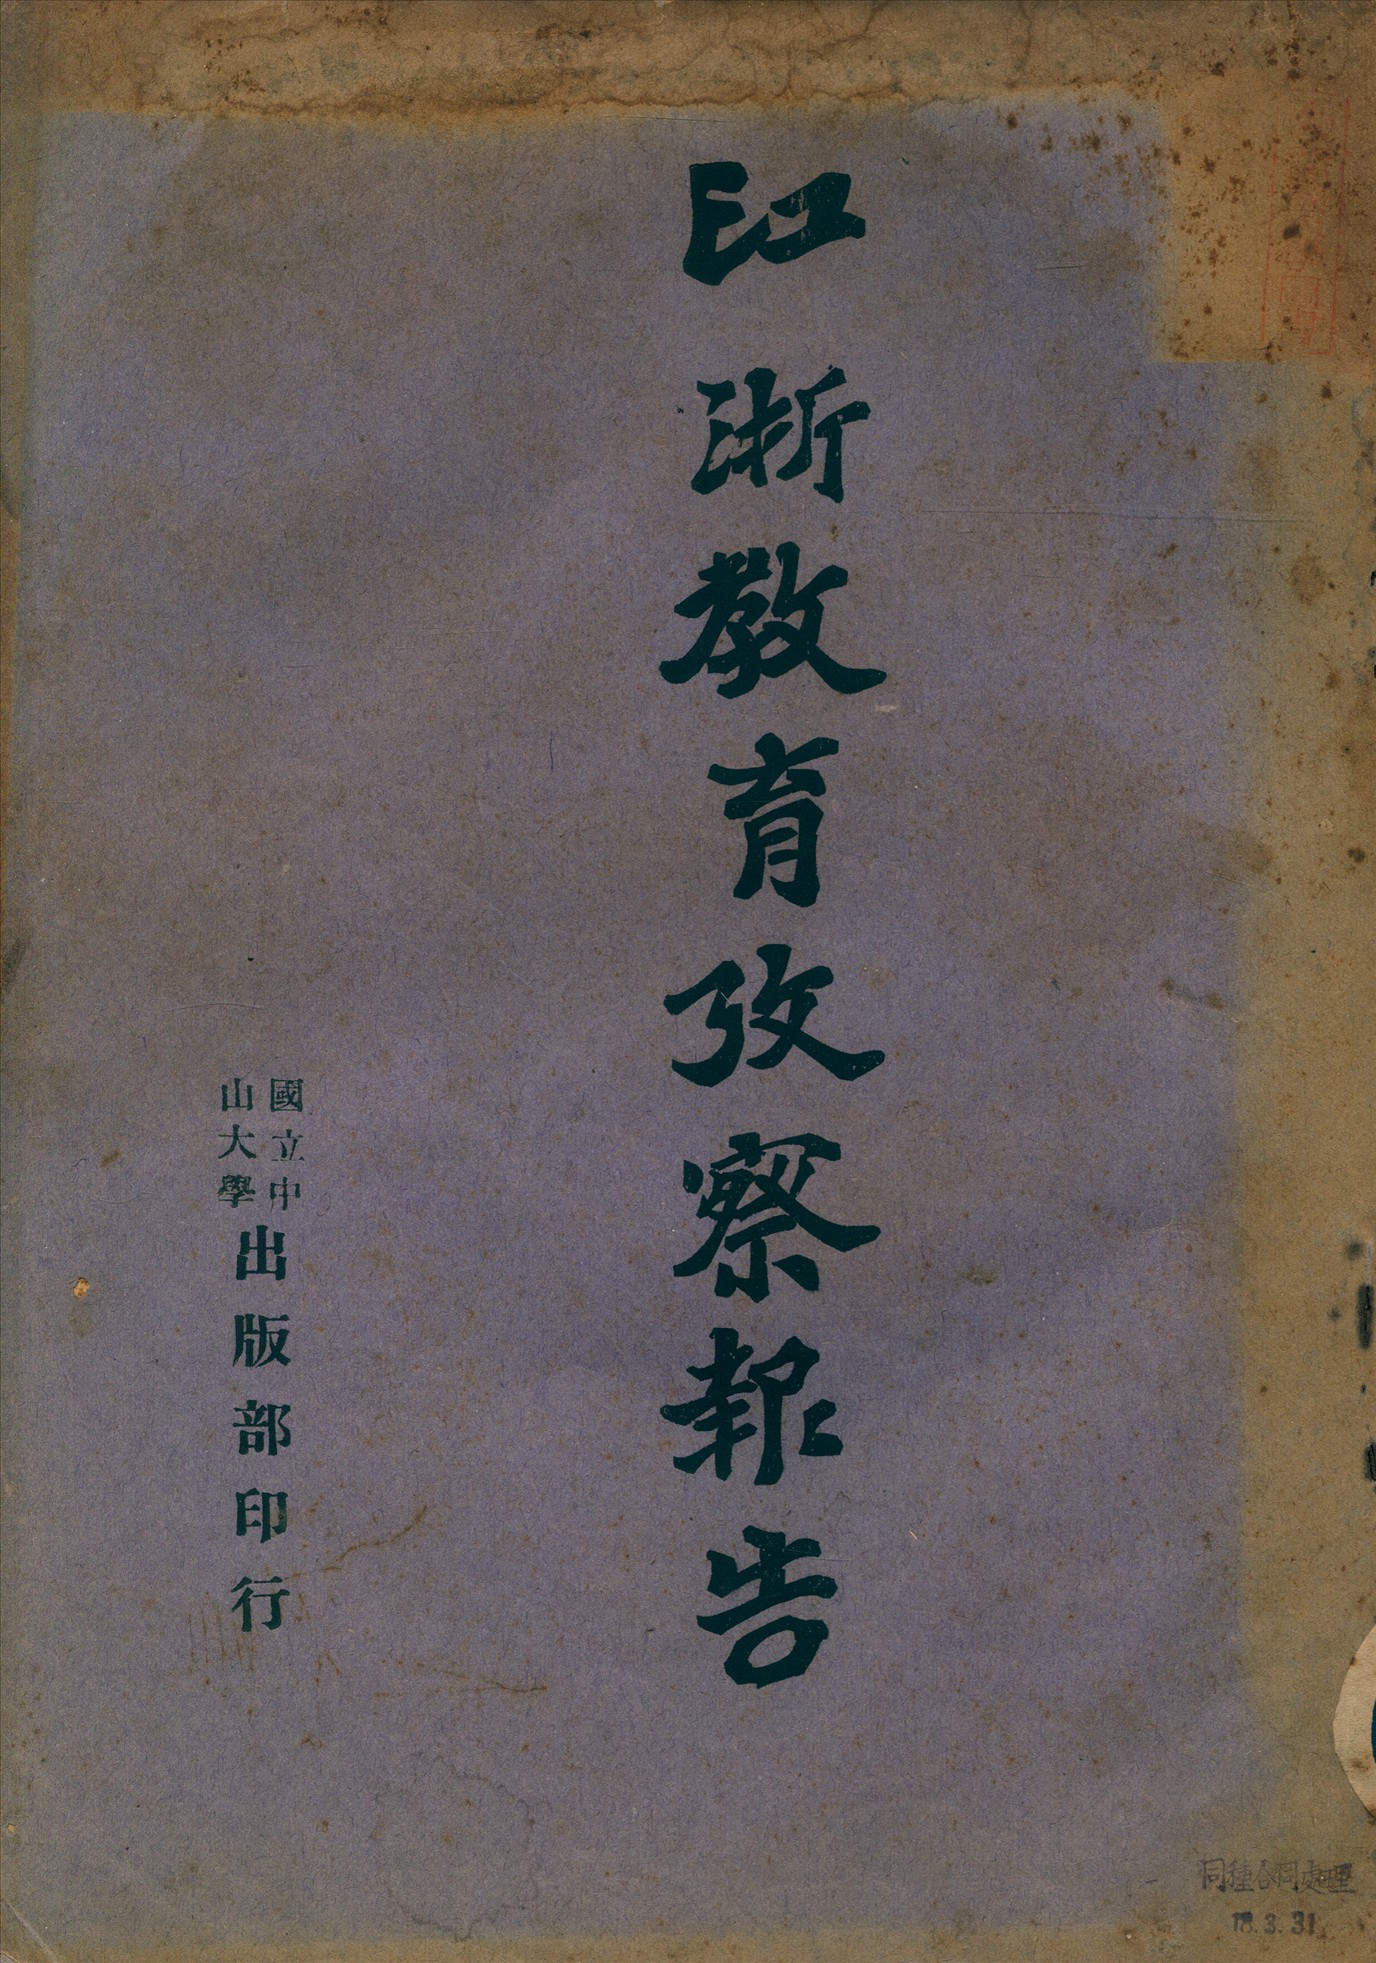 江浙教育攷察報告
國立中
山大學
出版部印行
同種合同處理
18.3.31